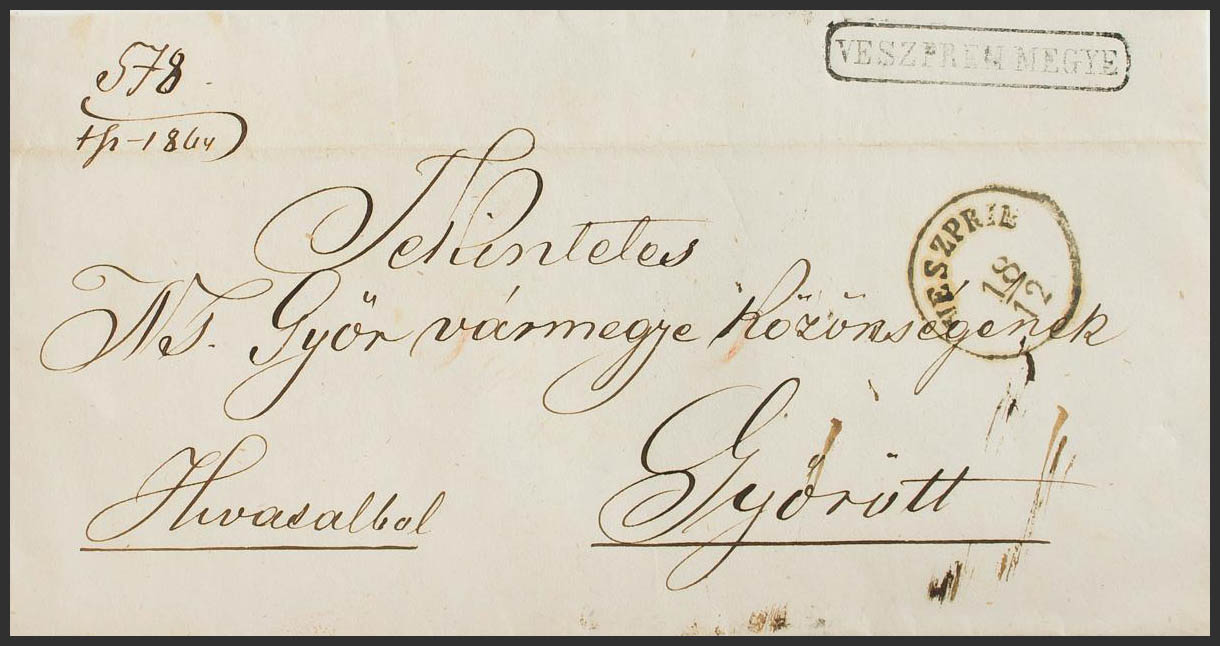 578
VESZPREM MEGYE
1864
Tekintetes
NS. Győr vármegye Közönségének
VESZPRIM
18/12
Hivatalból
Győrött